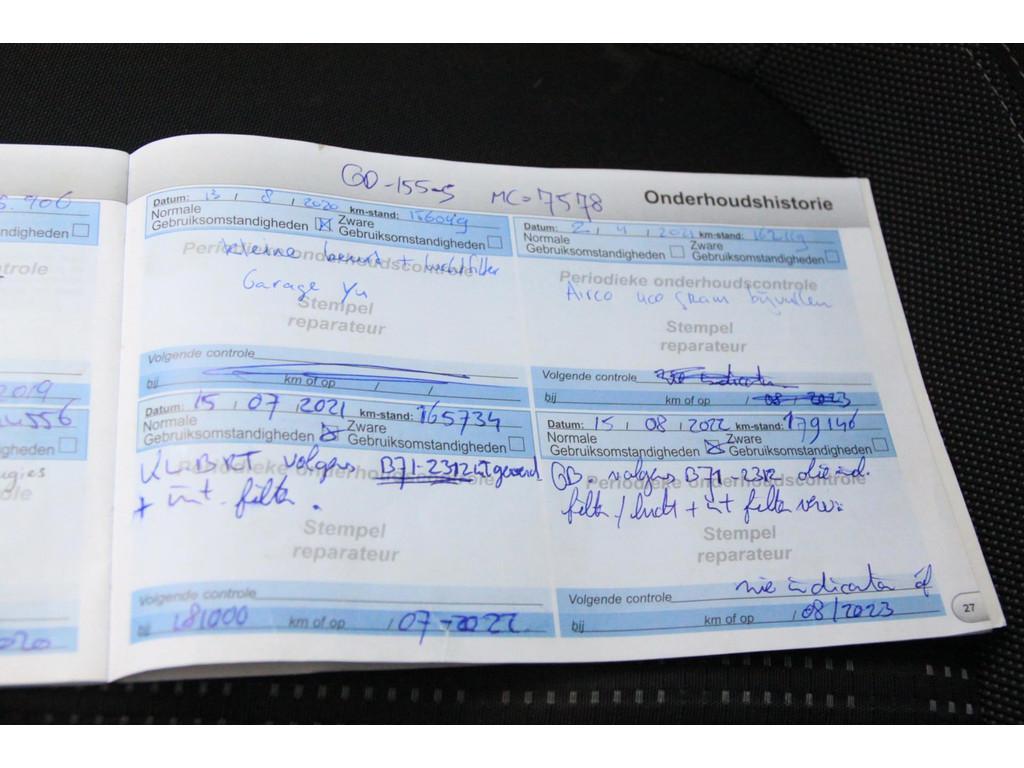 GD-155-S MC=7578 Onderhoudshistorie
Datum: 13 / 8 / 2020 km-stand: 156049
Normale Gebruiksomstandigheden Zware Gebruiksomstandigheden
Periodieke onderhoudscontrole
kleine beurt + luchtfilter
Garage Yu
Stempel
reparateur
Volgende controle
bij km of op / /
Datum: 2 / 4 / 2021 km-stand:
Normale Gebruiksomstandigheden Zware Gebruiksomstandigheden
Periodieke onderhoudscontrole
Airco 400 gram bijvullen
Stempel
reparateur
Volgende controle
bij km of op / 08-2023
Datum: 15 / 07 / 2021 km-stand: 165734
Normale Gebruiksomstandigheden Zware Gebruiksomstandigheden
volgens B71-2312 uitgevoerd
Periodieke onderhoudscontrole
+ int. filter.
Stempel
reparateur
Volgende controle
bij 181000 km of op / 07-2022
Datum: 15 / 08 / 2022 km-stand: 179146
Normale Gebruiksomstandigheden Zware Gebruiksomstandigheden
GB volgens B71-2312 olie
Periodieke onderhoudscontrole
filter / lucht + int filter
Stempel
reparateur
Volgende controle zie indicator of
bij km of op / 08/2023
27
2019
2020